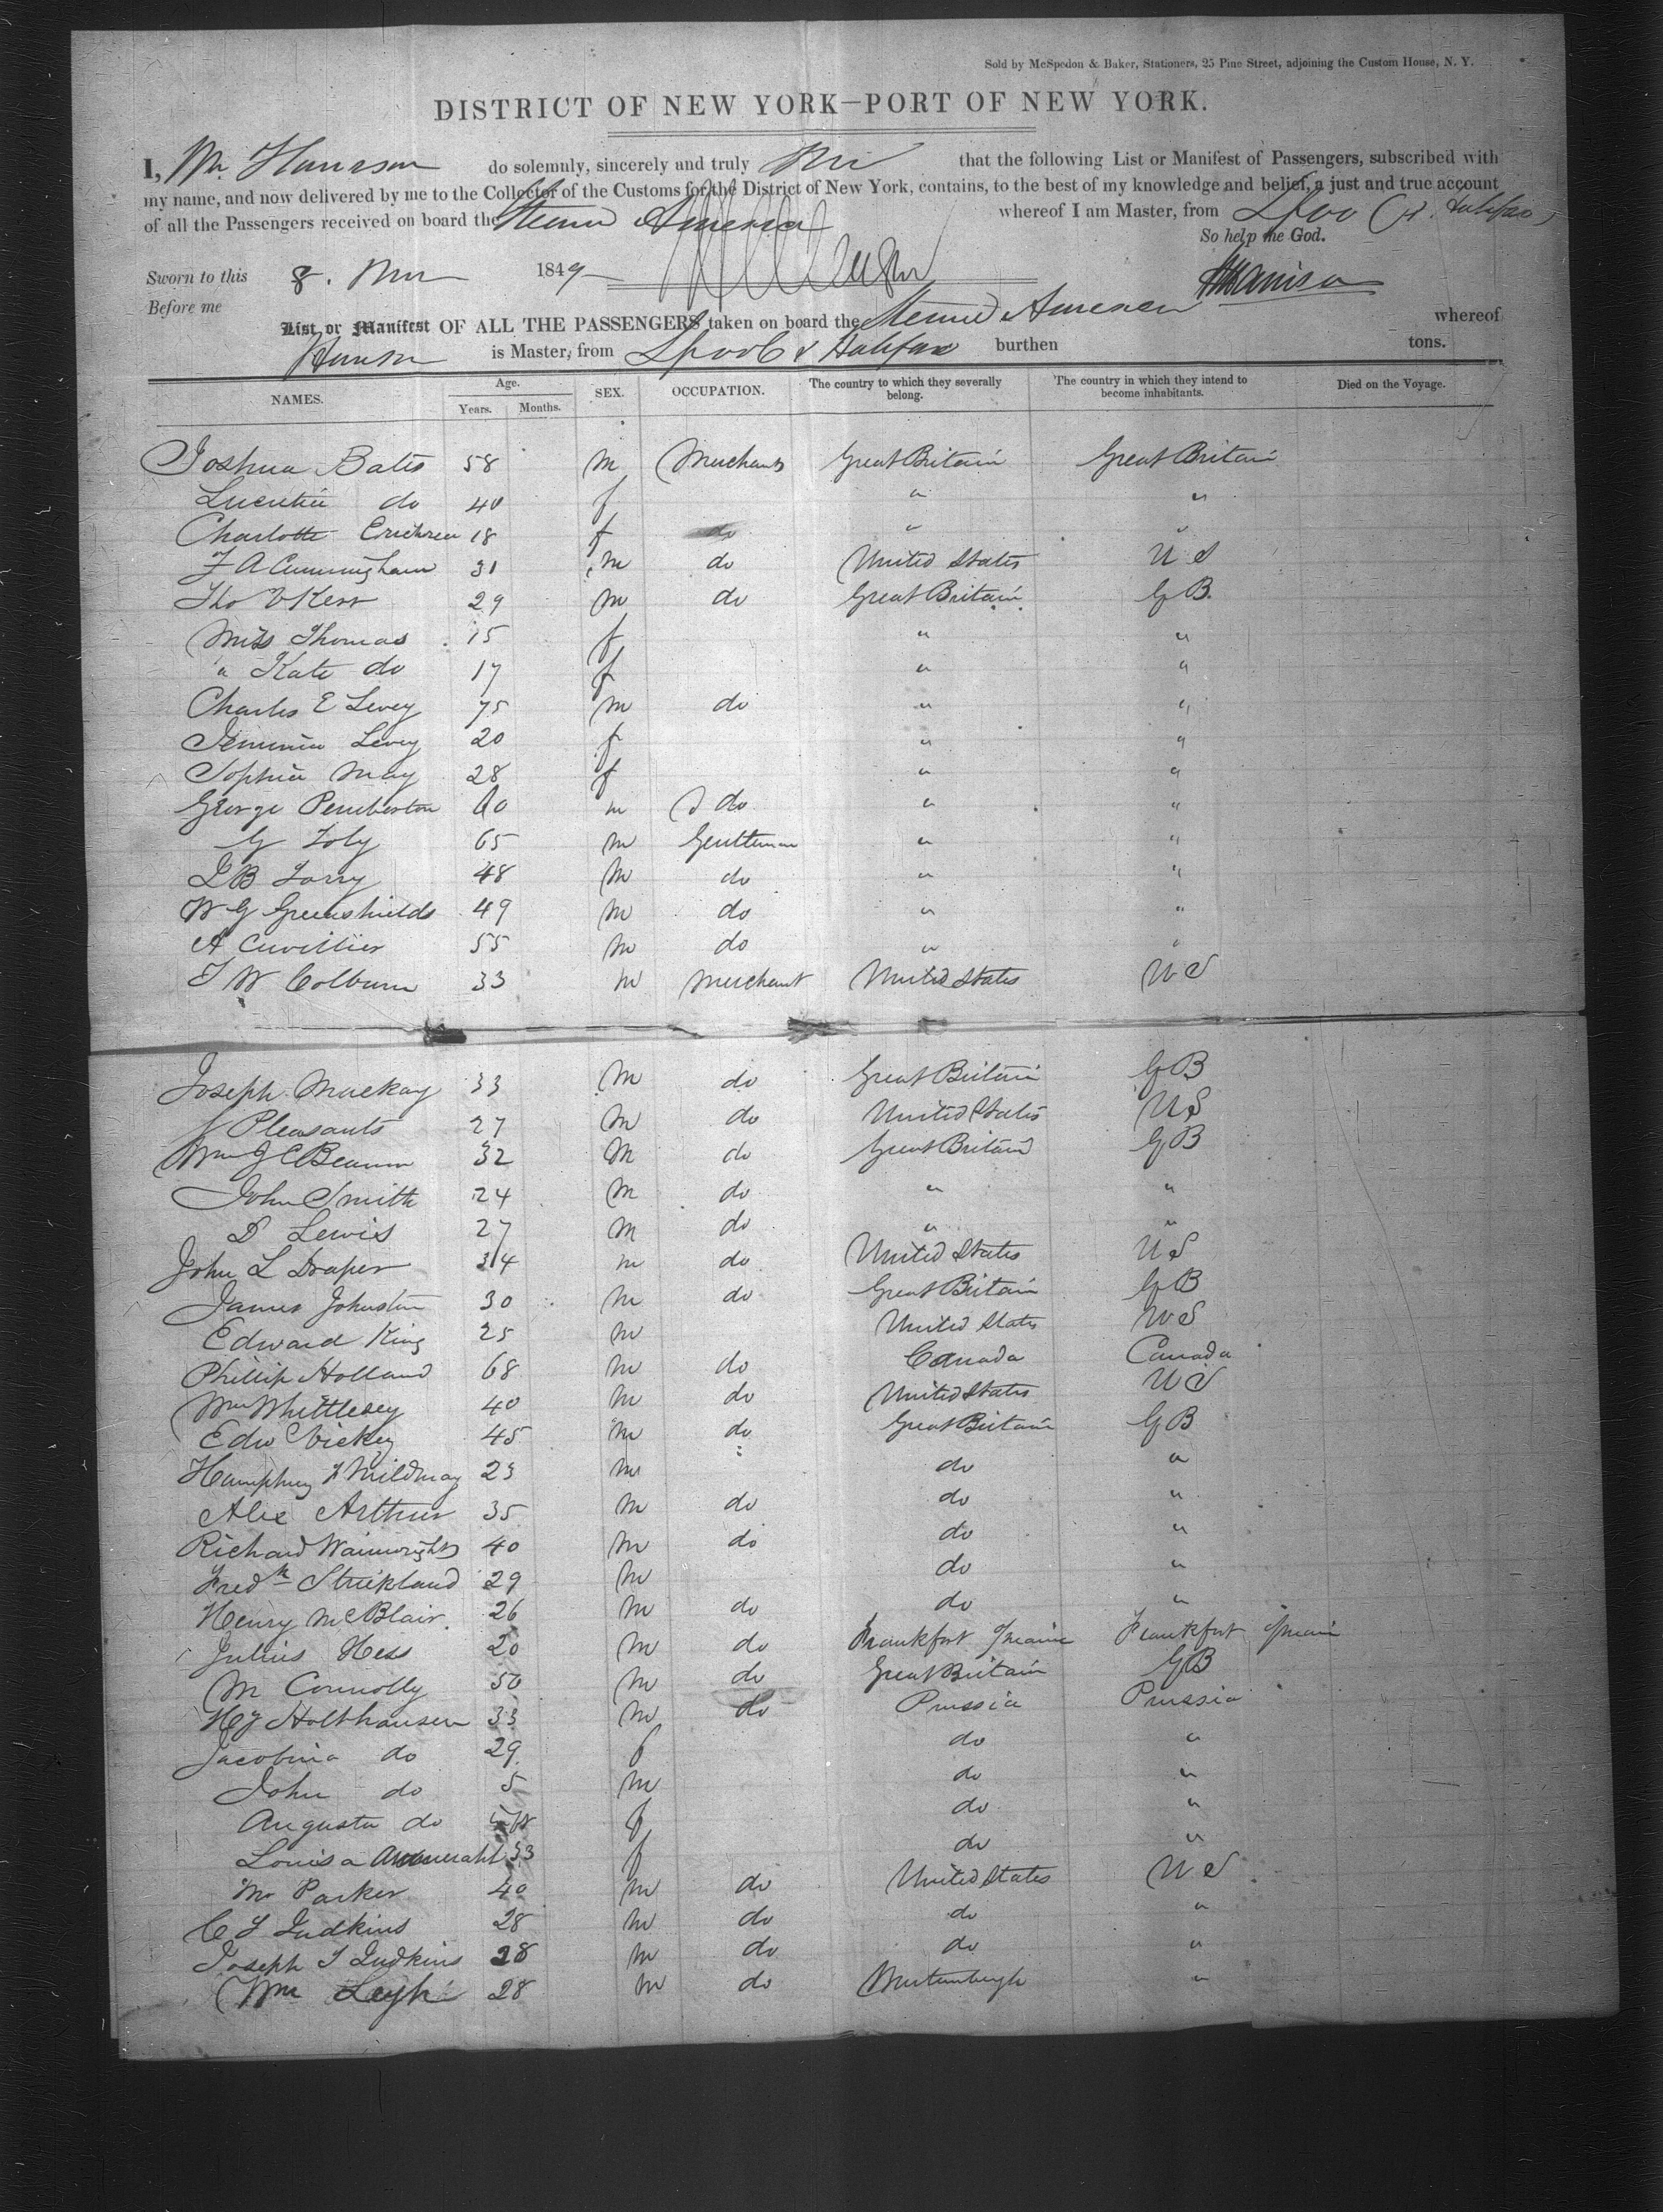 Sold by McSpedon & Baker, Stationers, 25 Pine Street, adjoining the Custom House, N. Y.
DISTRICT OF NEW YORK—PORT OF NEW YORK.
I, do solemnly, sincerely and truly that the following List or Manifest of Passengers, subscribed with
my name, and now delivered by me to the Collector of the Customs for the District of New York, contains, to the best of my knowledge and belief, a just and true account
of all the Passengers received on board the Steamer America whereof I am Master, from Lpool & Halifax
So help me God.
Sworn to this 8. 1849
Before me
List or Manifest OF ALL THE PASSENGERS taken on board the Steamer America whereof
is Master, from Lpool & Halifax burthen tons.
NAMES. Age. Years. Months. SEX. OCCUPATION. The country to which they severally belong. The country in which they intend to become inhabitants. Died on the Voyage.
Joshua Bates 58 m Merchant Great Britain Great Britain
do 40 f " "
Charlotte 18 f do " "
F A Cunningham 31 m do United States U S
Tho Kerr 29 m do Great Britain G B.
Miss Thomas 15 f " "
" Kate do 17 f " "
Charles E Levey 75 m do " "
Jemima Levey 20 f " "
Sophia May 28 f " "
George Pemberton 60 m do " "
G Joly 65 m Gentleman " "
48 m do " "
W G Greenshields 49 m do " "
A Cuvillier 55 m do " "
J W Colburn 33 m merchant United States U S
Joseph Mackay 33 m do Great Britain G B
Pleasants 27 m do United States U S
Wm 32 m do Great Britain G B
John Smith 24 m do " "
D Lewis 27 m do " "
John L Draper 34 m do United States U S
James Johnston 30 m do Great Britain G B
Edward King 25 m United States U S
Phillip Holland 68 m do Canada Canada
Wm Whittlesey 40 m do United States U S
Edw Vickey 45 m do Great Britain G B
Humphrey Mildmay 23 m do "
Alex Arthur 35 m do do "
Richard Wainwright 40 m do do "
Fredk Strikland 29 m do "
Henry McBlair 26 m do do "
Julius Hess 20 m do Frankfort Frankfort
M Connolly 50 m do Great Britain G B
Hy Holthausen 33 m do Prussia Prussia
Jacobina do 29 f do "
John do 5 m do "
Augusta do f do "
Louisa 33 f do "
Mr Parker 40 m do United States U S
C J Judkins 28 m do do "
Joseph J Judkins 28 m do do "
Wm 28 m do "